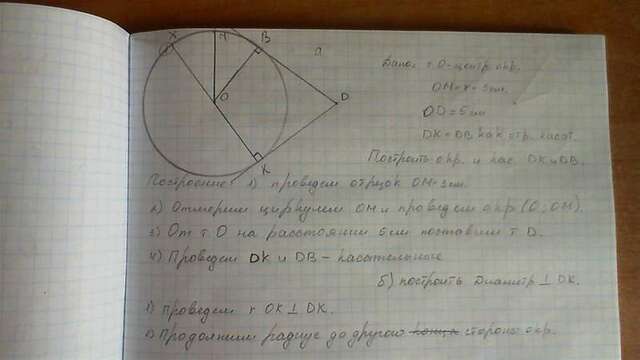 X Н В а
О D
К
Дано: т О-центр окр.
ОН=r=3см.
ОD=5см
DK=DB как отр. касат.
Построить окр. и кас. DK и DB.
Построение: 1) проведем отрезок ОН=3см.
2) Отмерим циркулем ОН и проведем окр (О; ОН).
3) От т О на расстоянии 5см поставим т. D.
4) Проведем DK и DB – касательные
б) построить Диаметр ⊥ DK.
1) проведем r OK ⊥ DK.
2) Продолжим радиус до другой стороны окр.